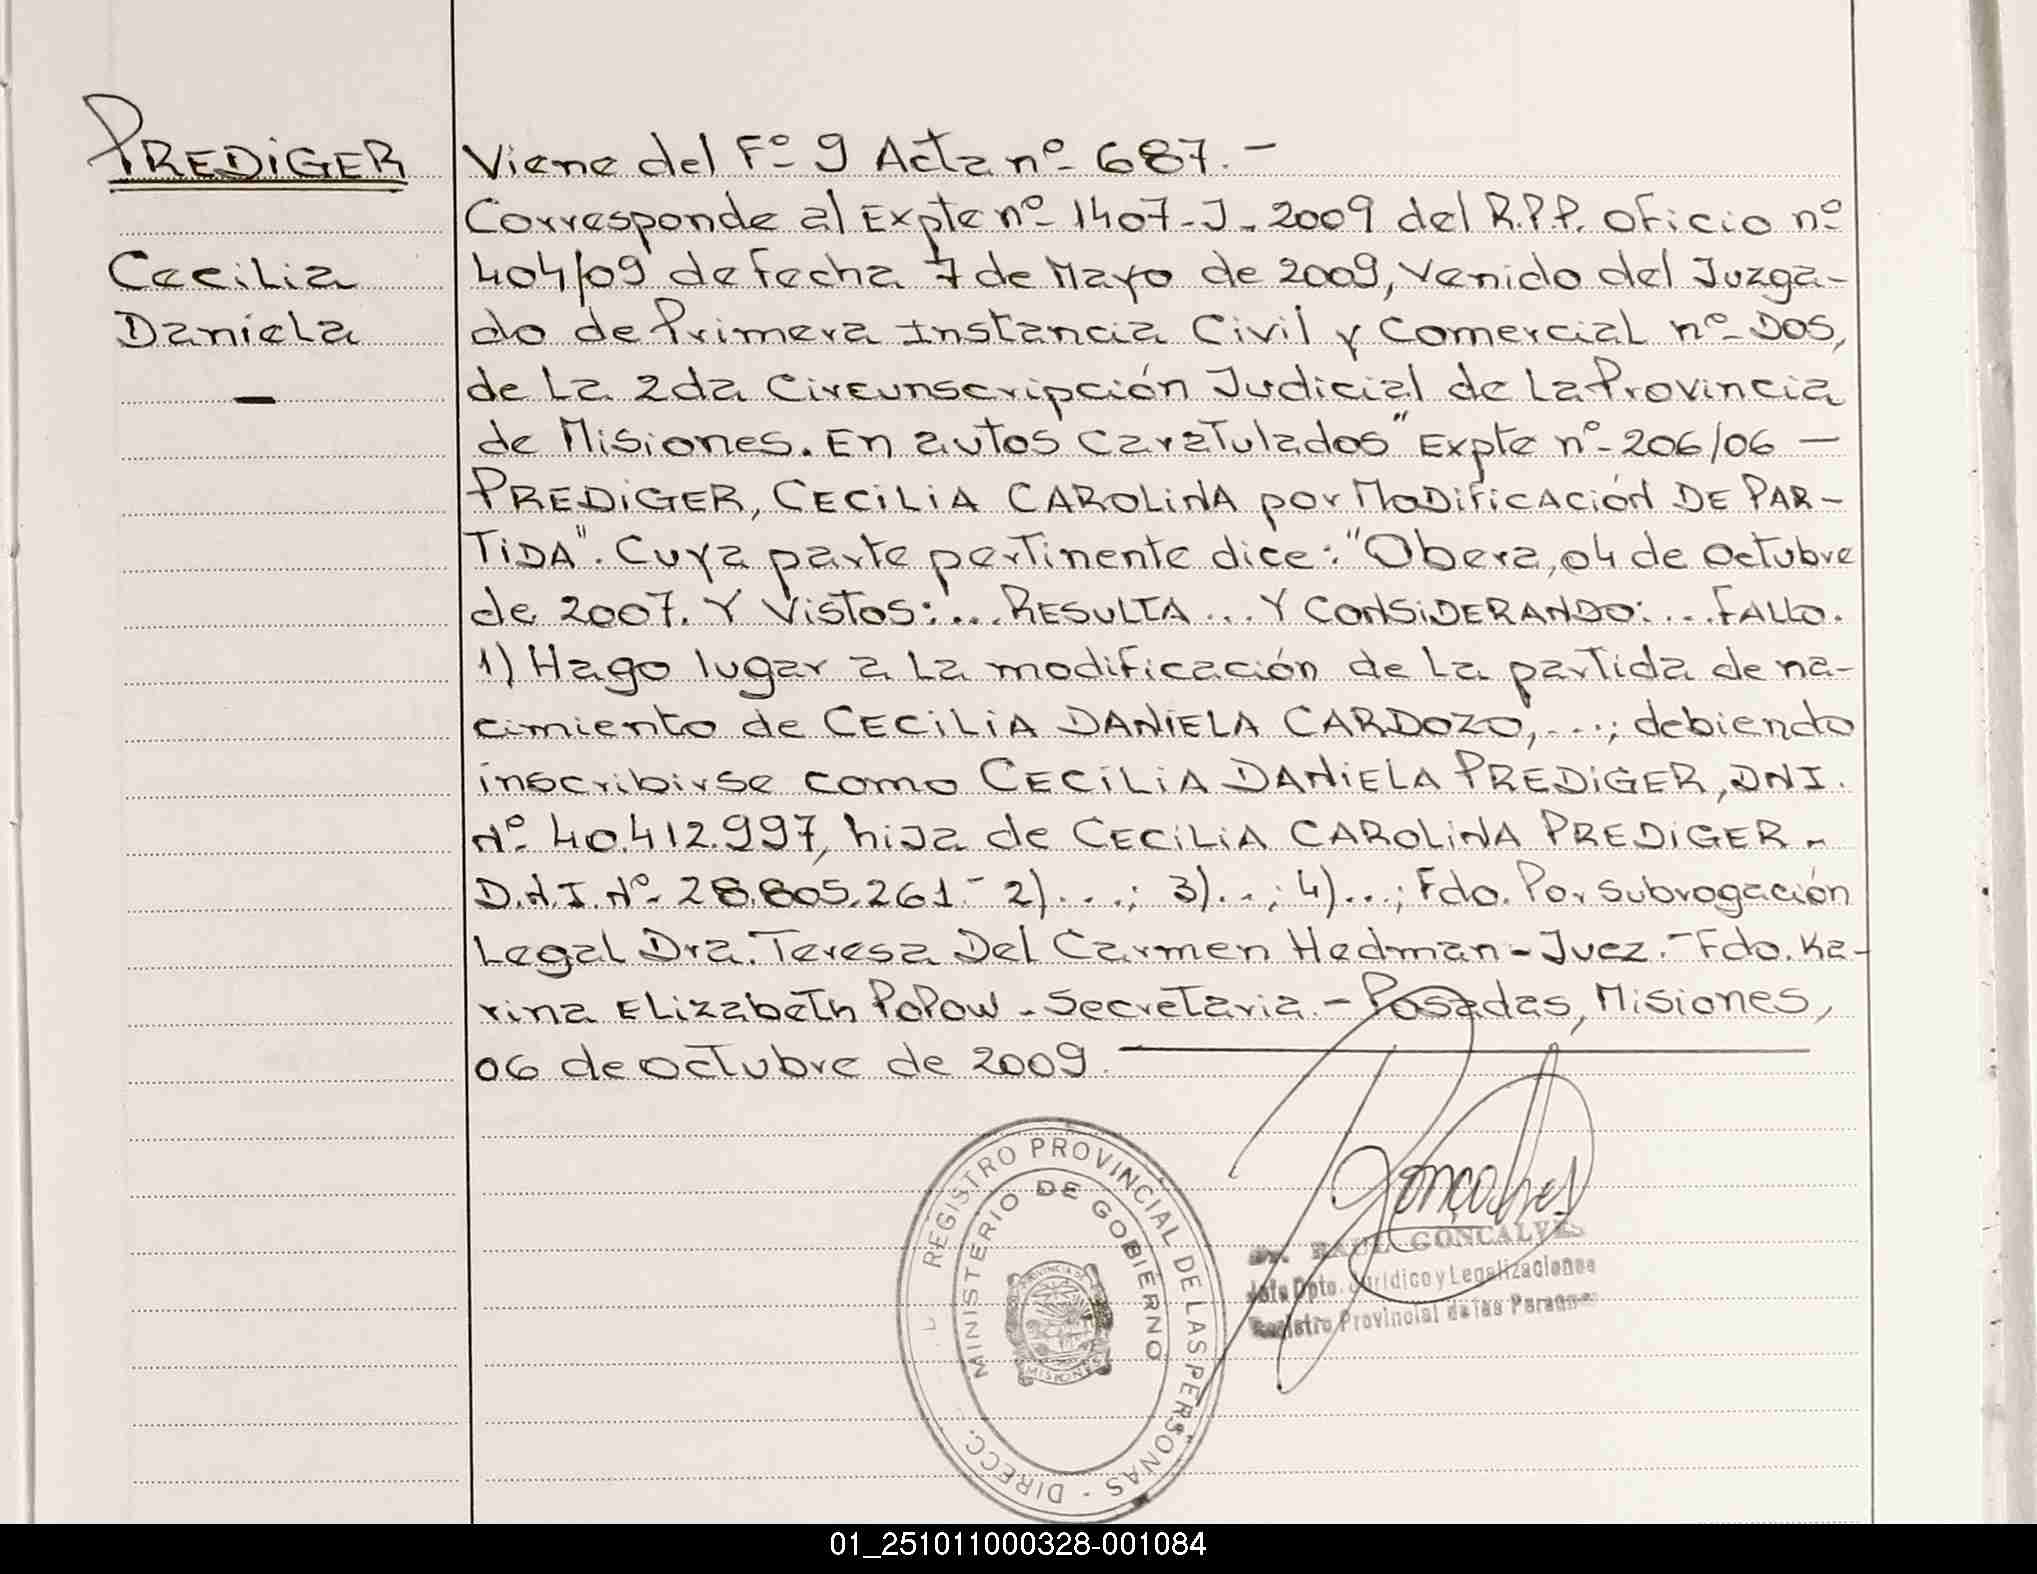 PREDIGER
Cecilia
Daniela
—
Viene del Fº 9 Acta nº 687.—
Corresponde al Expte nº 1407-J-2009 del R.P.P. oficio nº
404/09 de fecha 7 de Mayo de 2009, venido del Juzga-
do de Primera Instancia Civil y Comercial nº DOS,
de la 2da Circunscripción Judicial de la Provincia
de Misiones. En autos caratulados "Expte nº 206/06 —
PREDIGER, CECILIA CAROLINA por MODIFICACIÓN DE PAR-
TIDA". Cuya parte pertinente dice: "Obera, 04 de octubre
de 2007. Y Vistos:... RESULTA... Y CONSIDERANDO:... FALLO.
1) Hago lugar a la modificación de la partida de na-
cimiento de CECILIA DANIELA CARDOZO,...; debiendo
inscribirse como CECILIA DANIELA PREDIGER, DNI.
Nº 40.412.997, hija de CECILIA CAROLINA PREDIGER-
D.N.I. Nº 28.805.261.- 2)...; 3)...; 4)...; Fdo. Por subrogación
Legal Dra. Teresa Del Carmen Hedman - Juez.- Fdo. Ka-
rina Elizabeth Popow - Secretaria.- Posadas, Misiones,
06 de octubre de 2009.
DIRECC. REGISTRO PROVINCIAL DE LAS PERSONAS -
MINISTERIO DE GOBIERNO
PROVINCIA DE
MISIONES
Gonçalves
Dr. RAUL GONCALVES
Jefe Dpto. Jurídico y Legalizaciones
Registro Provincial de las Personas
01_251011000328-001084